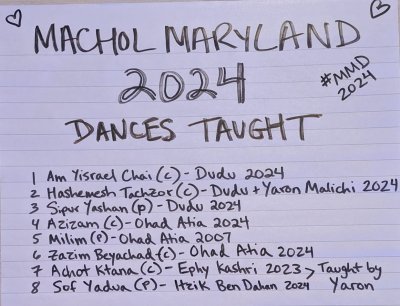 MACHOL MARYLAND
2024
#MMD
2024
DANCES TAUGHT
1 Am Yisrael Chai (c) - Dudu 2024
2 Hashemesh Tachzor (c) - Dudu + Yaron Malichi 2024
3 Sipur Yashan (p) - Dudu 2024
4 Azizam (c) - Ohad Atia 2024
5 Milim (p) - Ohad Atia 2007
6 Zazim Beyachad (c) - Ohad Atia 2024
7 Achot Ktana (c) - Ephy Kashri 2023 > Taught by
8 Sof Yadua (p) - Itzik Ben Dahan 2024 Yaron